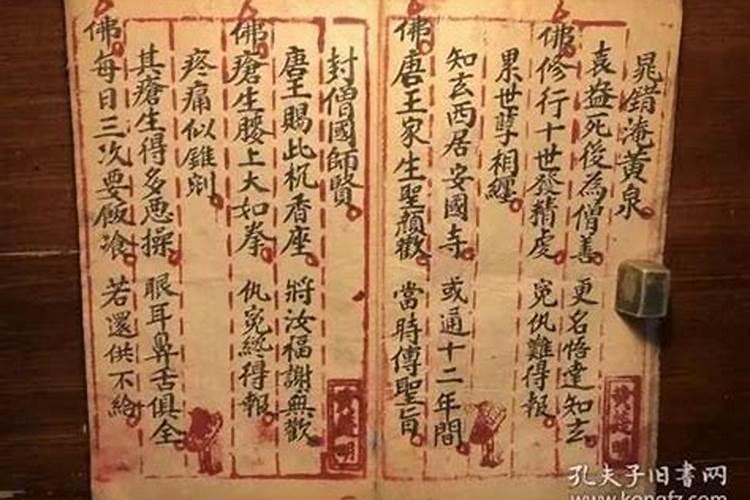 晁錯淹黃泉
袁盎死後為僧善 更名悟達知玄
佛修行十世發精虔 冤仇難得報
累世孽相纏
知玄西居安國寺 或通十二年間
佛唐王家生聖顏歡 當時傳聖旨
封僧國師賢
唐王賜此杌香座 將汝福謝無歡
佛瘡生腰上大如拳 仇冤終得報
疼痛似錐剜
其瘡生得多惡操 眼耳鼻舌俱全
佛每日三次要飯飡 若還供不給
孔夫子旧书网
www.kongfz.com